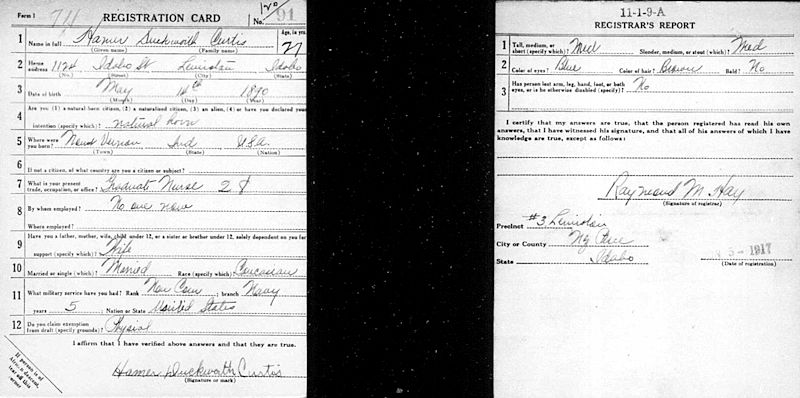 Form 1 711 REGISTRATION CARD No. 91
1 Name in full Hamer Duckworth Curtis Age, in yrs. 27
(Given name) (Family name)
2 Home address 1124 Idaho St Lewiston Idaho
(No.) (Street) (City) (State)
3 Date of birth May 14th 1890
(Month) (Day) (Year)
4 Are you (1) a natural-born citizen, (2) a naturalized citizen, (3) an alien, (4) or have you declared your
intention (specify which)? natural born
5 Where were you born? Mount Vernon Ind U.S.A.
(Town) (State) (Nation)
6 If not a citizen, of what country are you a citizen or subject?
7 What is your present trade, occupation, or office? Graduate Nurse 28
8 By whom employed? No one now
Where employed?
9 Have you a father, mother, wife, child under 12, or a sister or brother under 12, solely dependent on you for
support (specify which)? Wife
10 Married or single (which)? Married Race (specify which)? Caucasian
11 What military service have you had? Rank Non Com ; branch Navy
years 5 Nation or State United States
12 Do you claim exemption from draft (specify grounds)? Physical
I affirm that I have verified above answers and that they are true.
Hamer Duckworth Curtis
(Signature or mark)
If person is of
African descent,
11-1-9-A
REGISTRAR'S REPORT
1 Tall, medium, or short (specify which)? Med Slender, medium, or stout (which)? Med
2 Color of eyes? Blue Color of hair? Brown Bald? No
3 Has person lost arm, leg, hand, foot, or both
eyes, or is he otherwise disabled (specify)? No
I certify that my answers are true, that the person registered has read his own
answers, that I have witnessed his signature, and that all of his answers of which I have
knowledge are true, except as follows:
Raymond M. Hay
(Signature of registrar)
Precinct #3 Lewiston
City or County Nez Perce
State Idaho
1917
(Date of registration)